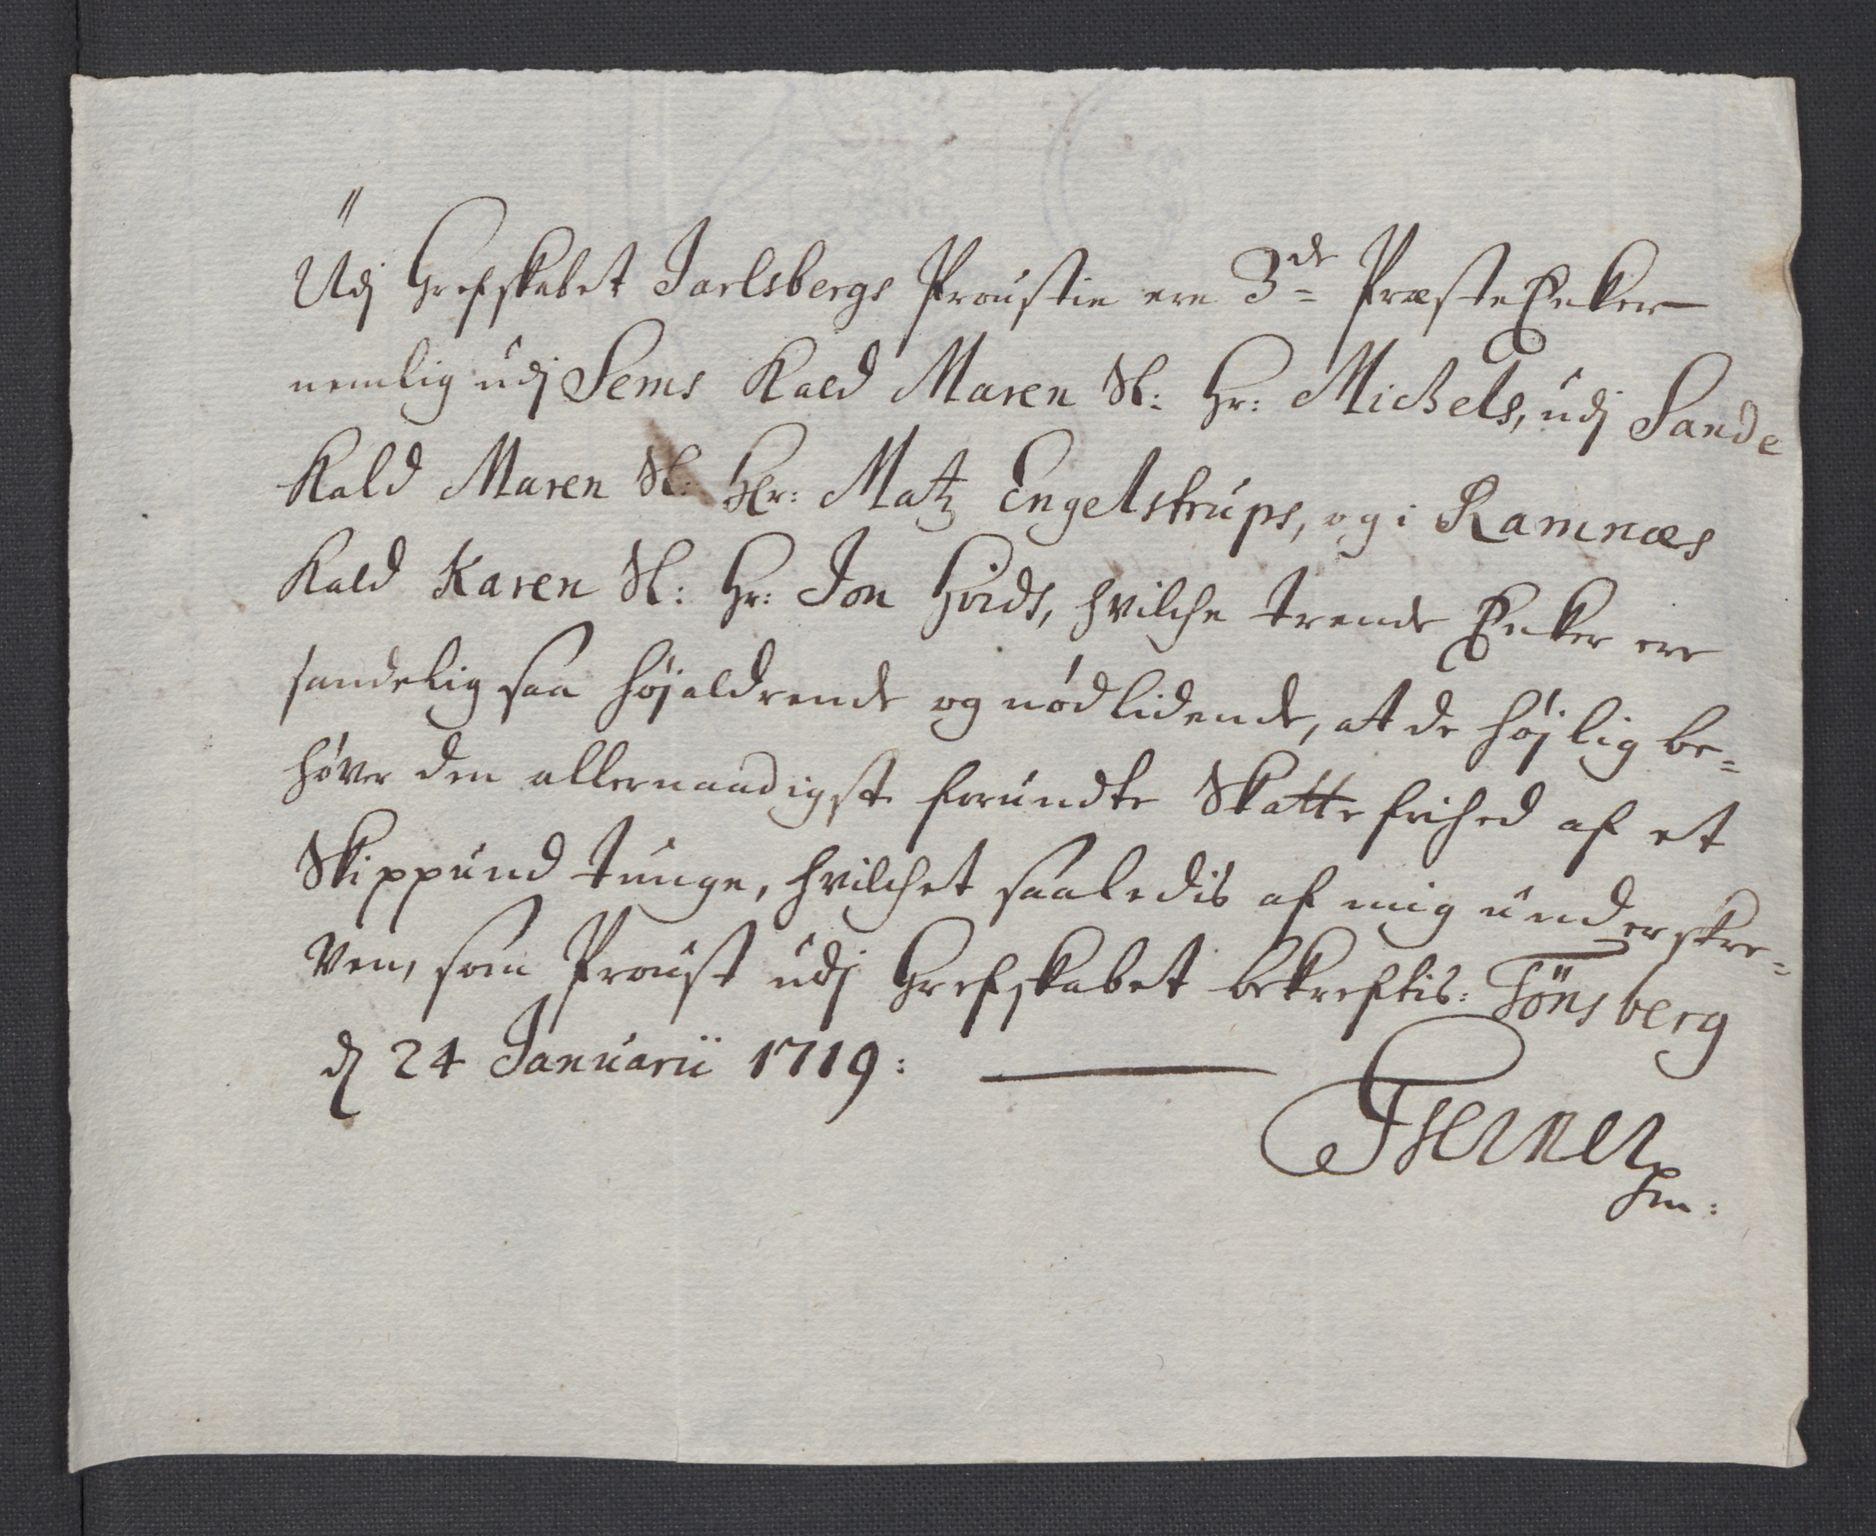 Udj Grefskabet Jarlsbergs Proustie ere 3de Præste Encker
nemlig udj Sems Kald Maren Sl: Hr: Michels, udj Sande
Kald Maren Sl: Hr: Matz Engelstrups, og i Ramnæs
Kald Karen Sl: Hr: Jon Hvids, hvilche trende Encker ere
sandelig saa højaldrende og nødlidende, at de højlig be=
høver den allernaadigst forundte Skatte frihed af et
Skippund tunge, hvilchet saaledis af mig underskre=
ven, som Proust udj Grefskabet bekreftis: Tönsberg
d 24 Januarii 1719: